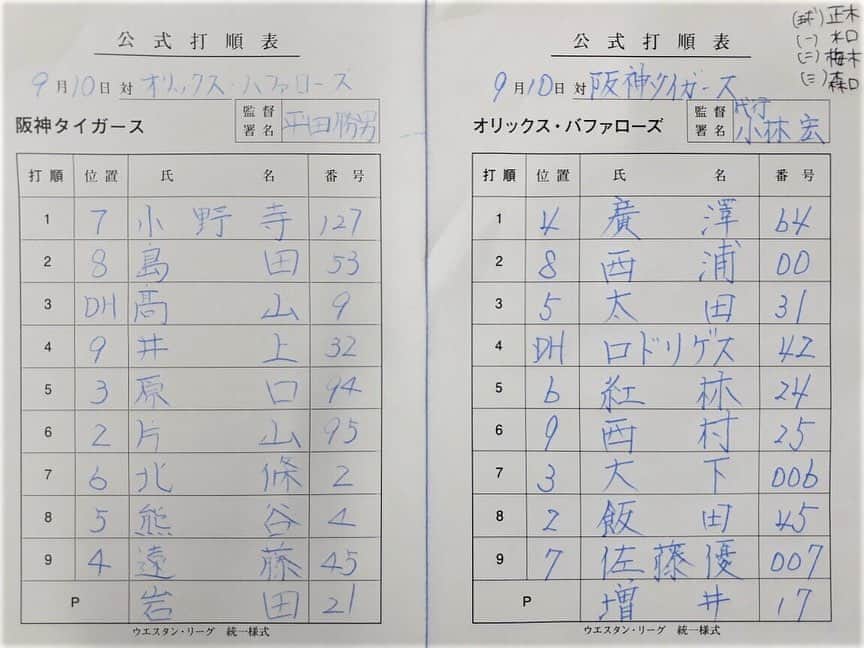 公式打順表
9月10日対 オリックス・バファローズ
阪神タイガース 監督署名 平田勝男
打順 位置 氏名 番号
1 7 小野寺 127
2 8 島田 53
3 DH 髙山 9
4 9 井上 32
5 3 原口 94
6 2 片山 95
7 6 北條 2
8 5 熊谷 4
9 4 遠藤 45
P 岩田 21
ウエスタン・リーグ 統一様式
(球) 正木
(一) 水口
(二) 梅木
(三) 森口
公式打順表
9月10日対 阪神タイガース
オリックス・バファローズ 監督署名 代行 小林宏
打順 位置 氏名 番号
1 4 廣澤 64
2 8 西浦 00
3 5 太田 31
4 DH ロドリゲス 42
5 6 紅林 24
6 9 西村 25
7 3 大下 006
8 2 飯田 45
9 7 佐藤優 007
P 増井 17
ウエスタン・リーグ 統一様式